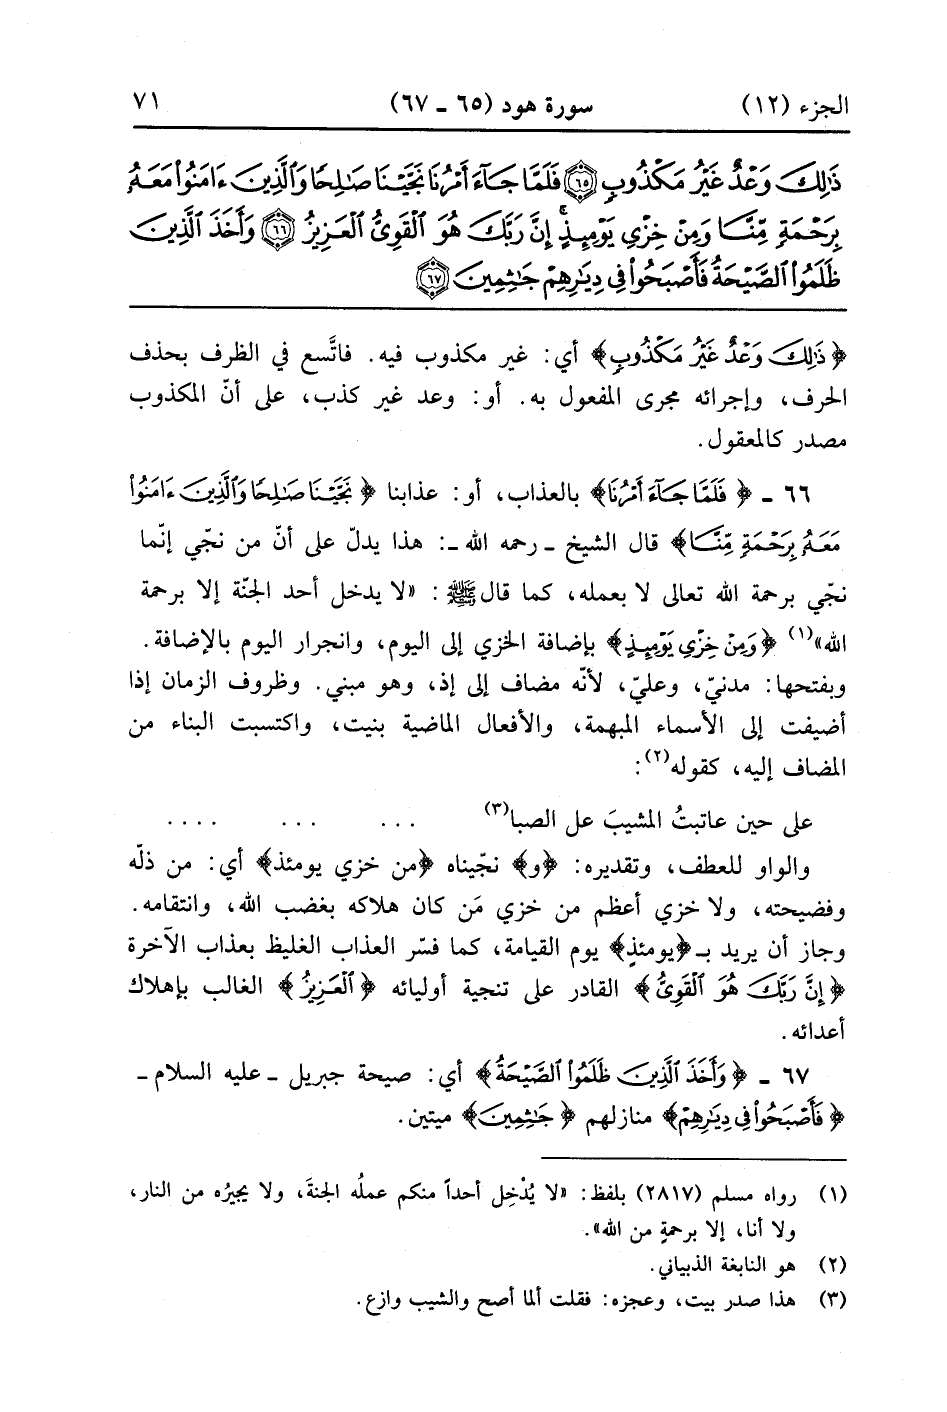 الجزء (١٢) سورة هود (٦٥ ـ ٦٧) ٧١
ذَٰلِكَ وَعْدٌ غَيْرُ مَكْذُوبٍ ﴿٦٥﴾ فَلَمَّا جَآءَ أَمْرُنَا نَجَّيْنَا صَٰلِحًا وَٱلَّذِينَ ءَامَنُوا۟ مَعَهُۥ
بِرَحْمَةٍ مِّنَّا وَمِنْ خِزْىِ يَوْمِئِذٍ ۗ إِنَّ رَبَّكَ هُوَ ٱلْقَوِىُّ ٱلْعَزِيزُ ﴿٦٦﴾ وَأَخَذَ ٱلَّذِينَ
ظَلَمُوا۟ ٱلصَّيْحَةُ فَأَصْبَحُوا۟ فِى دِيَٰرِهِمْ جَٰثِمِينَ ﴿٦٧﴾
﴿ذَٰلِكَ وَعْدٌ غَيْرُ مَكْذُوبٍ﴾ أي: غير مكذوب فيه. فاتَّسع في الظرف بحذف
الحرف، وإجرائه مجرى المفعول به. أو: وعد غير كذب، على أنّ المكذوب
مصدر كالمعقول.
٦٦ ـ ﴿فَلَمَّا جَآءَ أَمْرُنَا﴾ بالعذاب، أو: عذابنا ﴿نَجَّيْنَا صَٰلِحًا وَٱلَّذِينَ ءَامَنُوا۟
مَعَهُۥ بِرَحْمَةٍ مِّنَّا﴾ قال الشيخ ـ رحمه الله ـ: هذا يدلّ على أنّ من نجّي إنّما
نجّي برحمة الله تعالى لا بعمله، كما قال ﷺ: «لا يدخل أحد الجنّة إلا برحمة
الله»(١) ﴿وَمِنْ خِزْىِ يَوْمِئِذٍ﴾ بإضافة الخزي إلى اليوم، وانجرار اليوم بالإضافة.
وبفتحها: مدنيّ، وعليّ، لأنّه مضاف إلى إذ، وهو مبني. وظروف الزمان إذا
أضيفت إلى الأسماء المبهمة، والأفعال الماضية بنيت، واكتسبت البناء من
المضاف إليه، كقوله(٢):
على حين عاتبتُ المشيبَ عل الصبا(٣) ... ... ....
والواو للعطف، وتقديره: ﴿و﴾ نجّيناه ﴿من خزي يومئذ﴾ أي: من ذلّه
وفضيحته، ولا خزي أعظم من خزي مَن كان هلاكه بغضب الله، وانتقامه.
وجاز أن يريد بـ ﴿يومئذٍ﴾ يوم القيامة، كما فسّر العذاب الغليظ بعذاب الآخرة
﴿إِنَّ رَبَّكَ هُوَ ٱلْقَوِىُّ﴾ القادر على تنجية أوليائه ﴿ٱلْعَزِيزُ﴾ الغالب بإهلاك
أعدائه.
٦٧ ـ ﴿وَأَخَذَ ٱلَّذِينَ ظَلَمُوا۟ ٱلصَّيْحَةُ﴾ أي: صيحة جبريل ـ عليه السلام ـ
﴿فَأَصْبَحُوا۟ فِى دِيَٰرِهِمْ﴾ منازلهم ﴿جَٰثِمِينَ﴾ ميتين.
(١) رواه مسلم (٢٨١٧) بلفظ: «لا يُدْخِل أحداً منكم عملُه الجنةَ، ولا يجيرُه من النار،
ولا أنا، إلا برحمةٍ من الله».
(٢) هو النابغة الذبياني.
(٣) هذا صدر بيت، وعجزه: فقلت ألما أصح والشيب وازع.